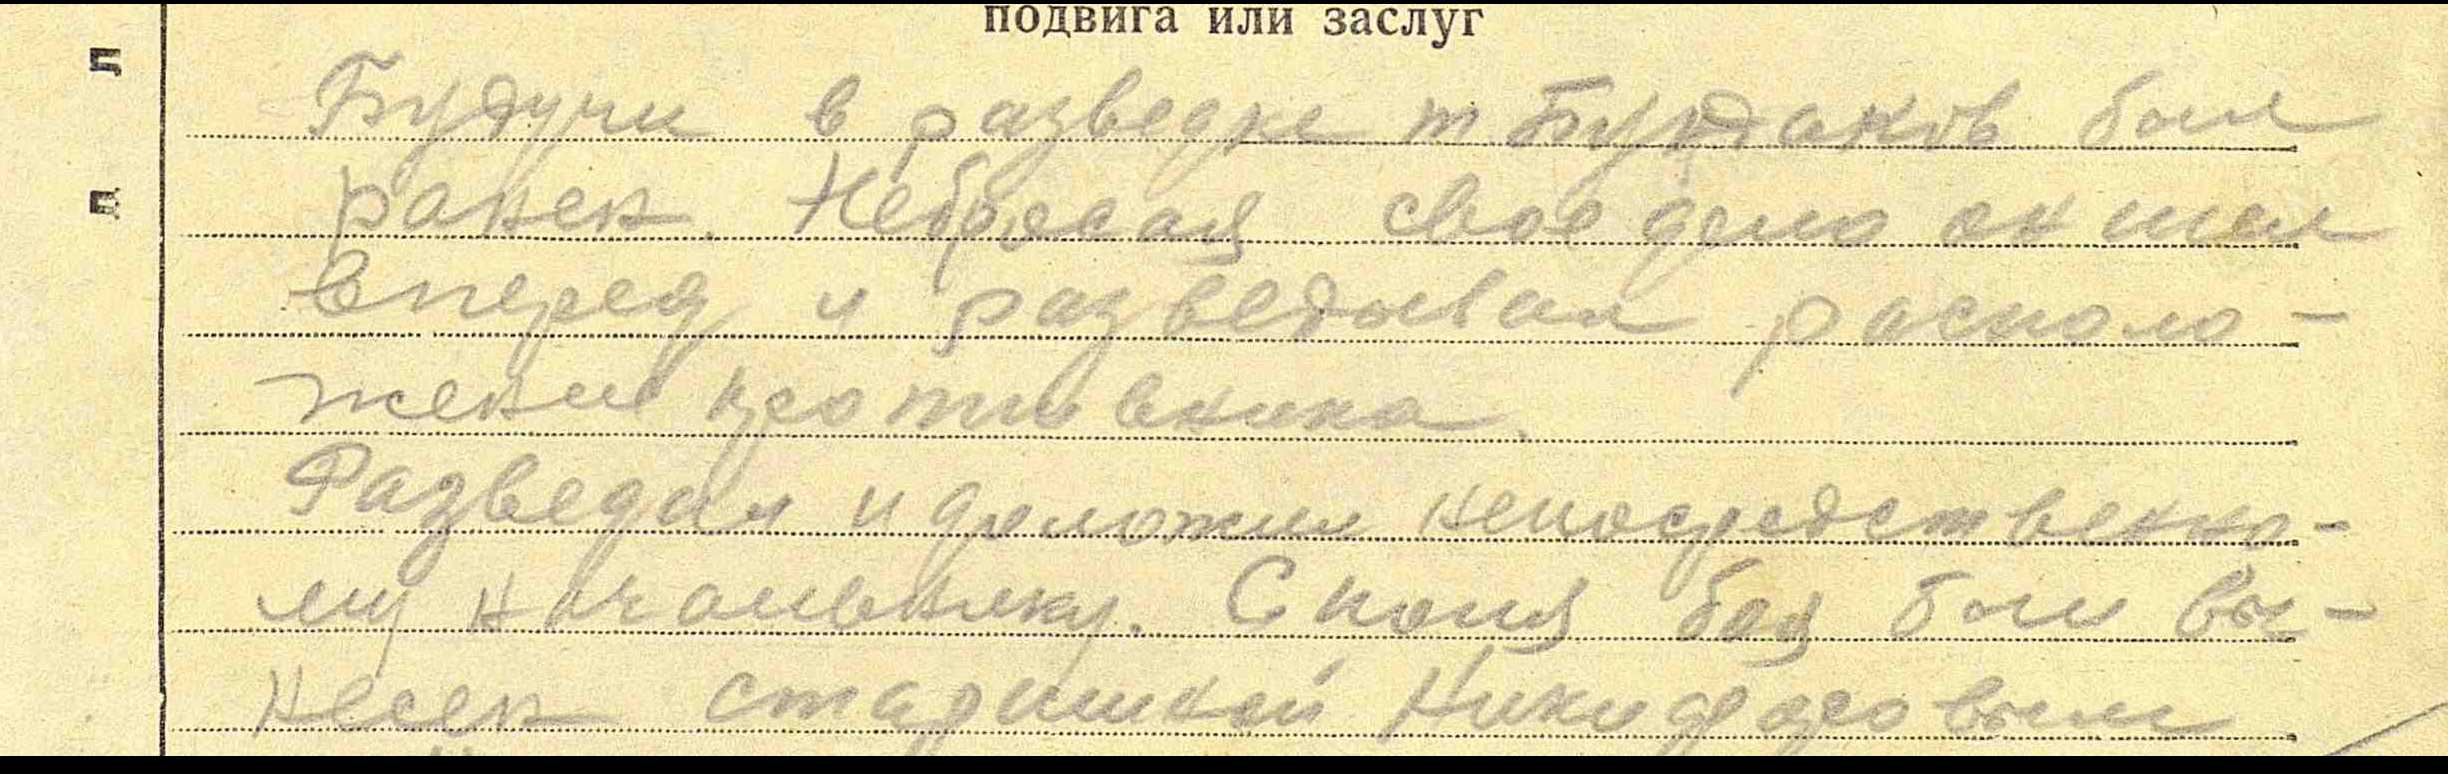 подвига или заслуг
Будучи в разведке т. Бурдаков был
ранен. Небросая свое дело он шел
вперед и разведывал располо-
жение противника.
Разведал и доложил непосредственно-
му начальнику. С поля боя был вы-
несен старшиной Никифоровым